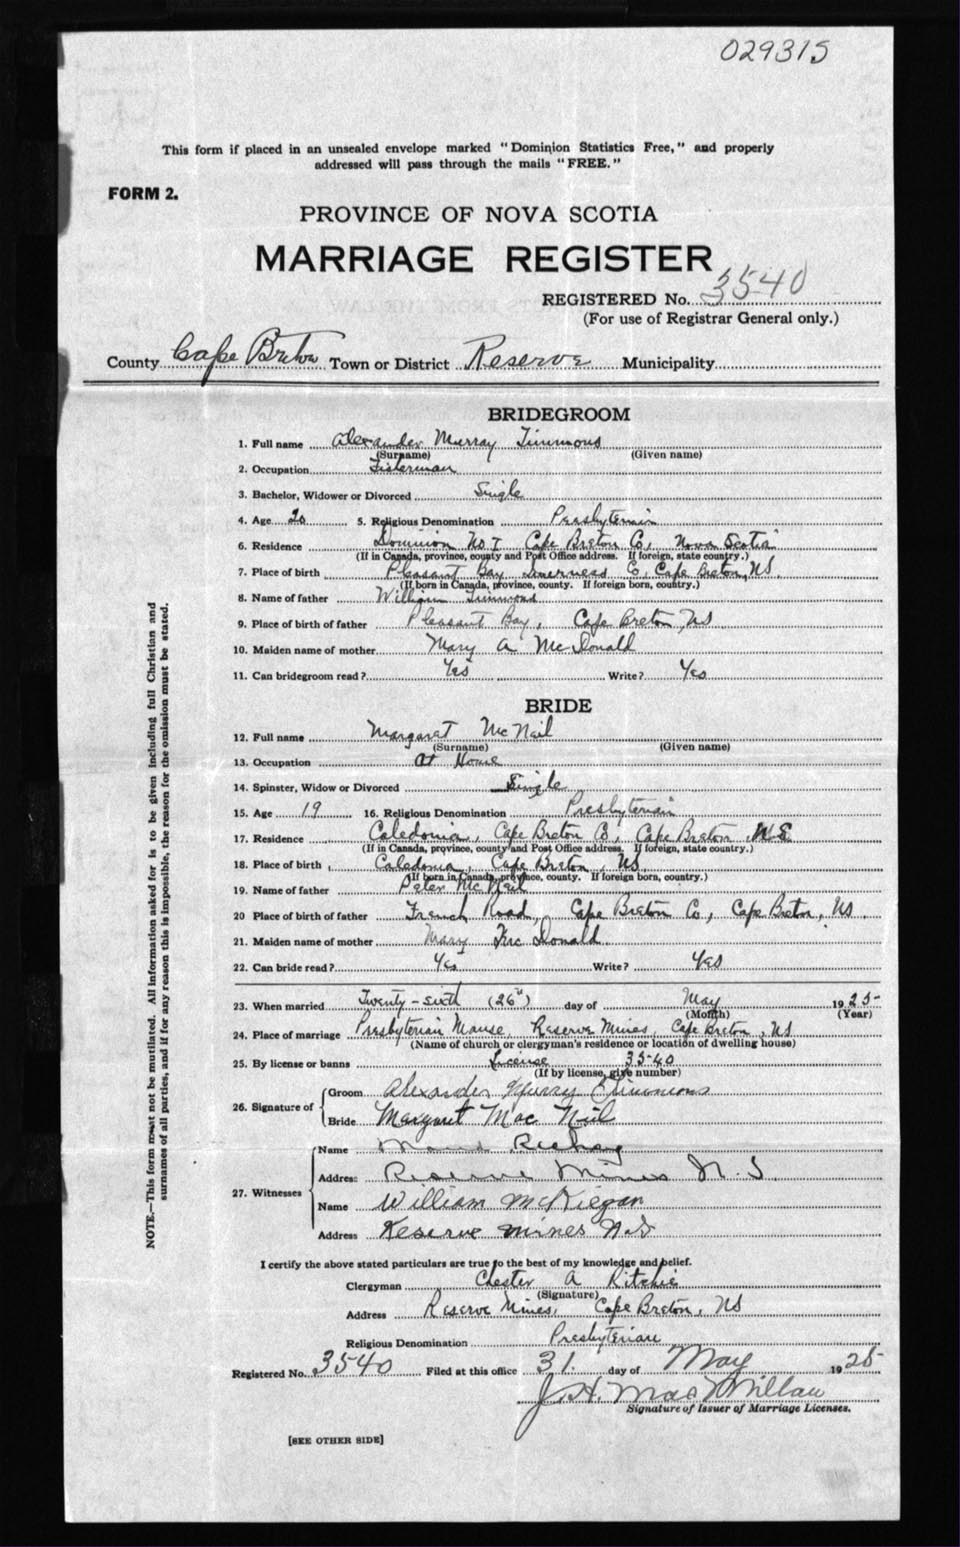 029315
This form if placed in an unsealed envelope marked "Dominion Statistics Free," and properly
addressed will pass through the mails "FREE."
FORM 2.
PROVINCE OF NOVA SCOTIA
MARRIAGE REGISTER
REGISTERED No. 3540
(For use of Registrar General only.)
County Cape Breton Town or District Reserve Municipality
BRIDEGROOM
1. Full name Alexander Murray Timmons
(Surname) (Given name)
2. Occupation Fisherman
3. Bachelor, Widower or Divorced Single
4. Age 20 5. Religious Denomination Presbyterian
6. Residence Dominion No I Cape Breton Co, Nova Scotia
(If in Canada, province, county and Post Office address. If foreign, state country.)
7. Place of birth Pleasant Bay Inverness Co, Cape Breton, NS.
(If born in Canada, province, county. If foreign born, country.)
8. Name of father William Timmons
9. Place of birth of father Pleasant Bay, Cape Breton, NS
10. Maiden name of mother Mary A McDonald
11. Can bridegroom read? Yes Write? Yes
BRIDE
12. Full name Margaret McNeil
(Surname) (Given name)
13. Occupation At Home
14. Spinster, Widow or Divorced Single
15. Age 19 16. Religious Denomination Presbyterian
17. Residence Caledonia, Cape Breton Co, Cape Breton, N.S
(If in Canada, province, county and Post Office address. If foreign, state country.)
18. Place of birth Caledonia, Cape Breton, NS
(If born in Canada, province, county. If foreign born, country.)
19. Name of father Peter McNeil
20 Place of birth of father French Road, Cape Breton Co, Cape Breton, NS.
21. Maiden name of mother Mary McDonald
22. Can bride read? Yes Write? Yes
23. When married Twenty-sixth (26") day of May 1925
(Month) (Year)
24. Place of marriage Presbyterian Manse, Reserve Mines, Cape Breton, NS
(Name of church or clergyman's residence or location of dwelling house)
25. By license or banns License 3540
(If by license, give number)
26. Signature of Groom Alexander Murray Timmons
Bride Margaret Mac Neil
27. Witnesses Name
Address Reserve Mines N.S
Name William McKiegan
Address Reserve Mines N.S
I certify the above stated particulars are true to the best of my knowledge and belief.
Clergyman Chester A Ritchie
(Signature)
Address Reserve Mines, Cape Breton, NS
Religious Denomination Presbyterian
Registered No. 3540 Filed at this office 31 day of May 1925
J. H. MacMillan
Signature of Issuer of Marriage Licenses.
[SEE OTHER SIDE]
NOTE.—This form must not be mutilated. All information asked for is to be given including full Christian and
surnames of all parties, and if for any reason this is impossible, the reason for the omission must be stated.